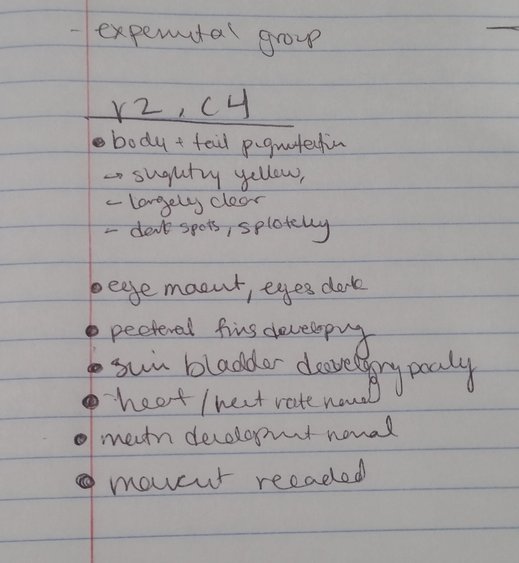 - experimental group
r2, c4
• body + tail pigmentation
→ slightly yellow,
- largely clear
- dark spots, splotchy
• eye movement, eyes dark
• pectoral fins developing
• swim bladder developing poorly
• heart/heart rate normal
• mouth development normal
• movement recorded